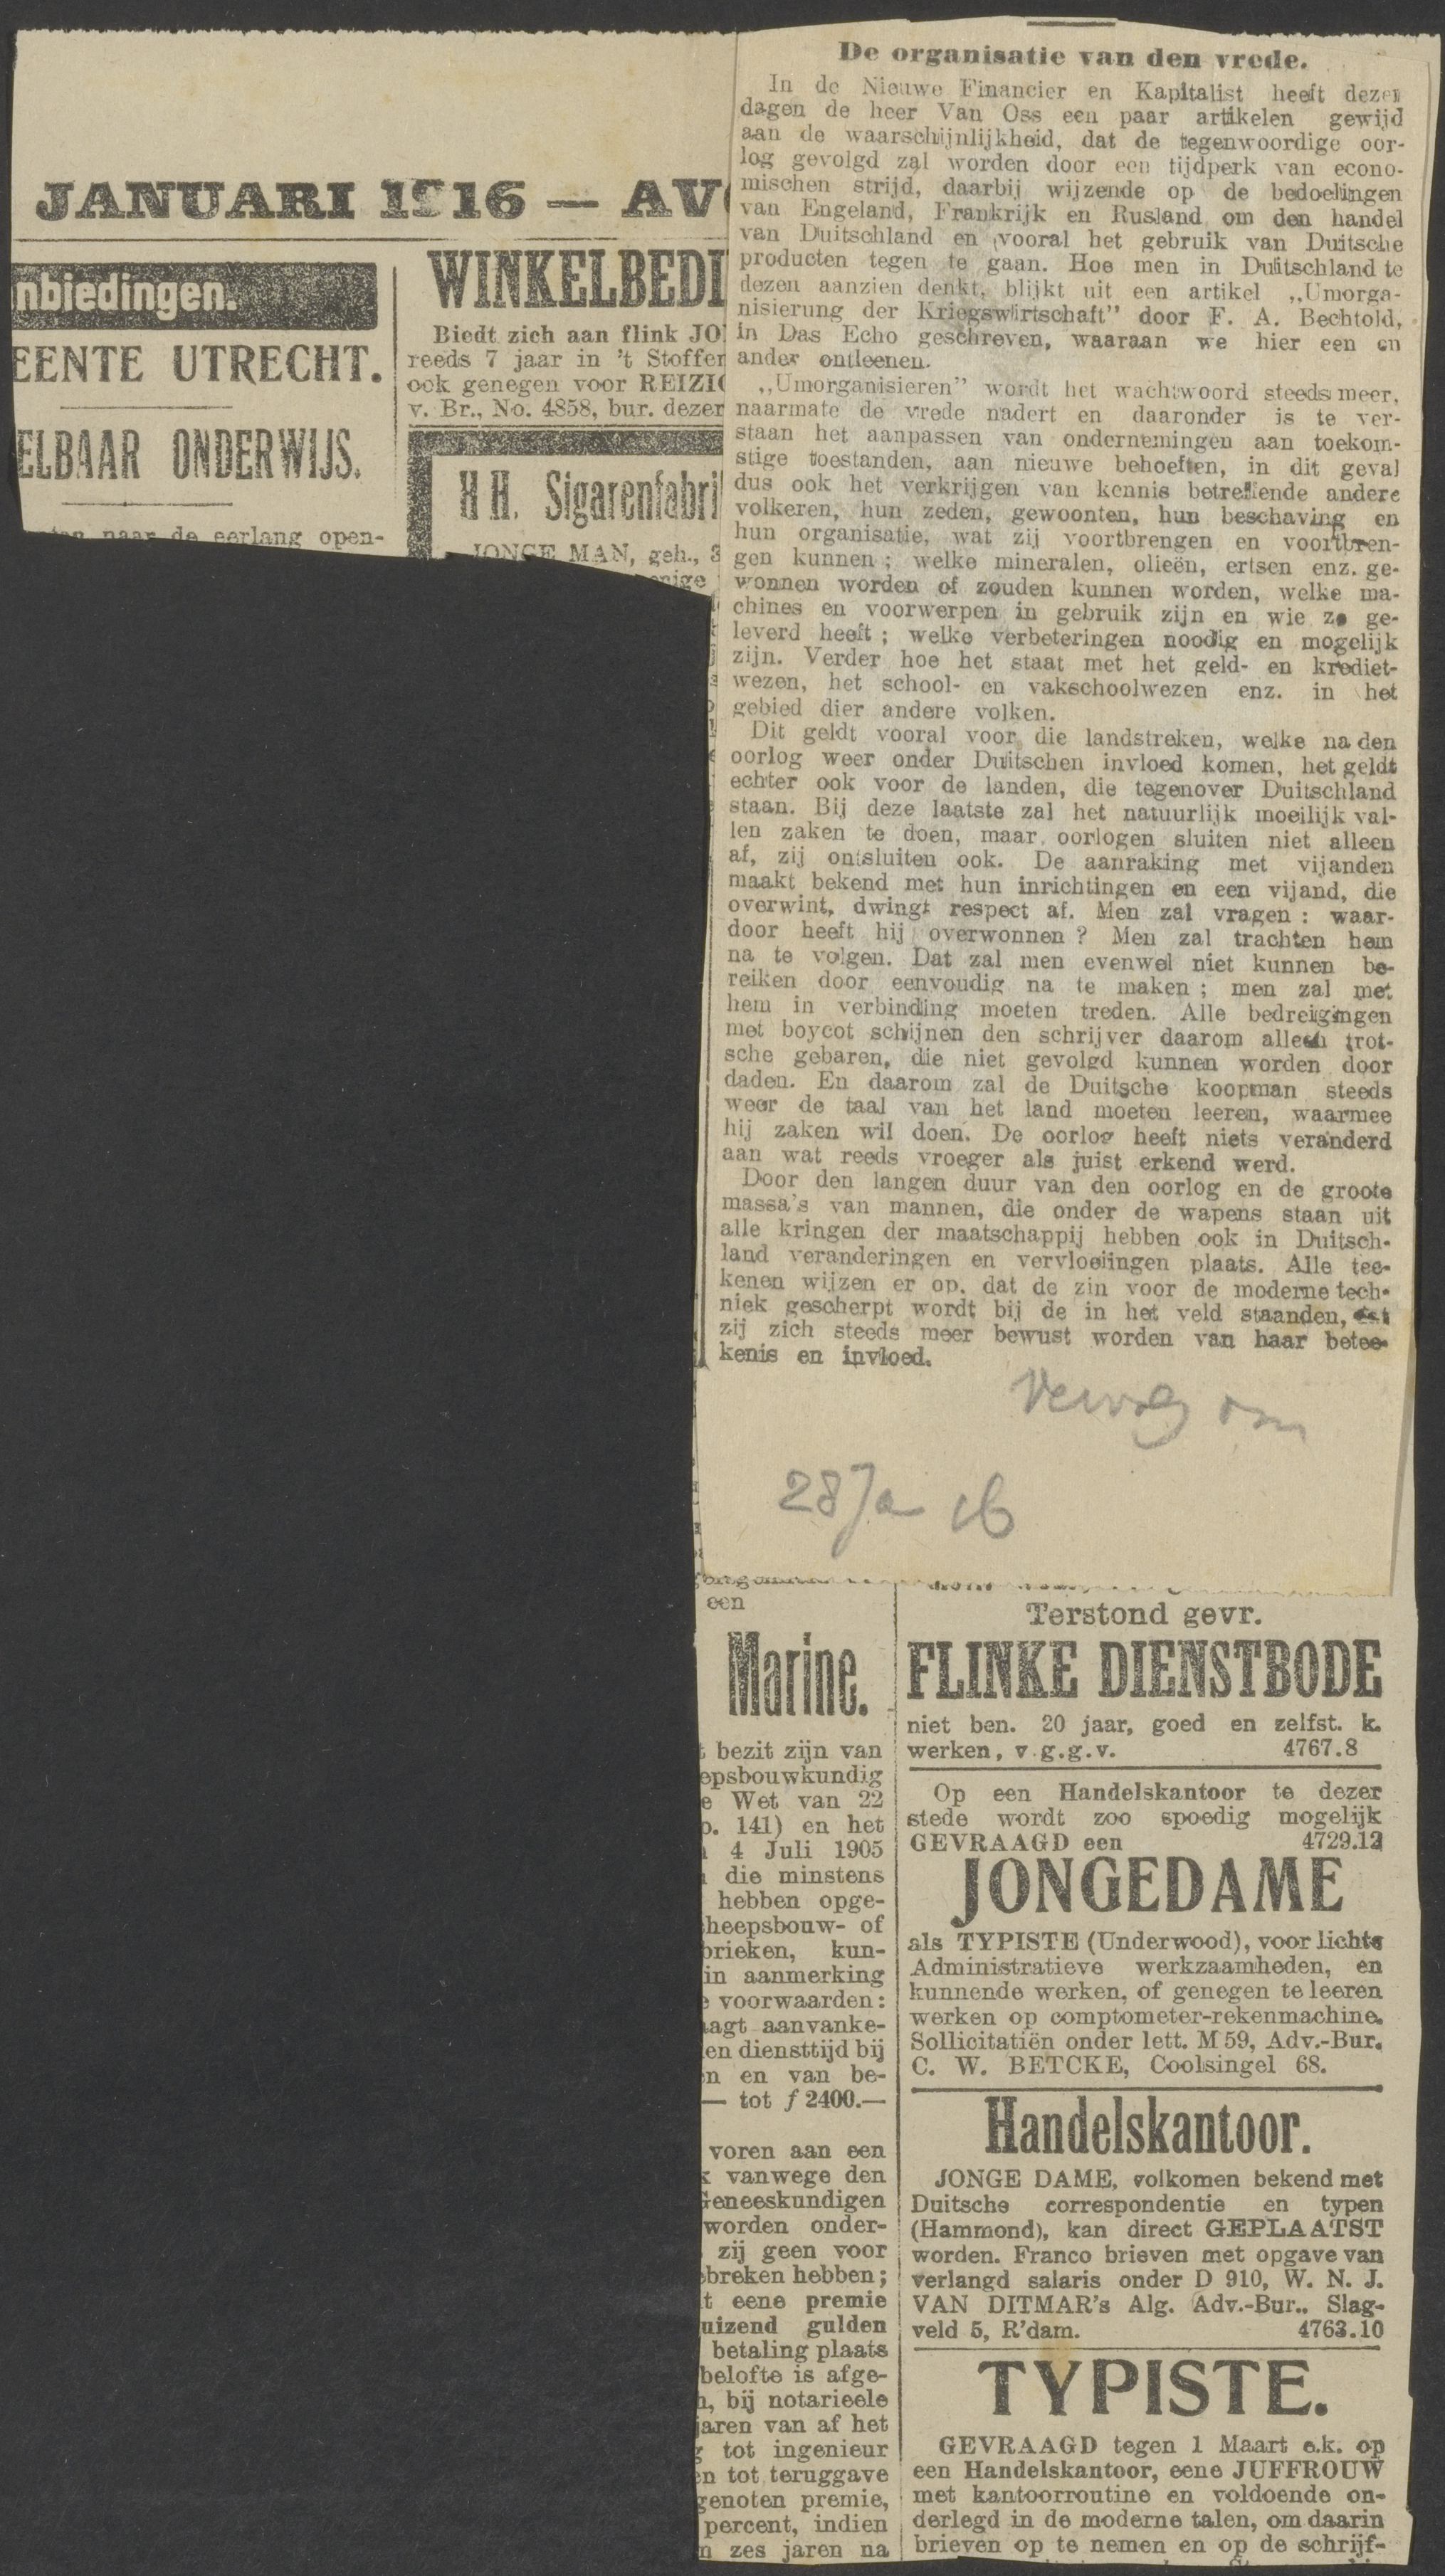 JANUARI 1916 — AV
nbiedingen.
EENTE UTRECHT.
ELBAAR ONDERWIJS.
naar de eerlang open-
WINKELBEDI
Biedt zich aan flink JO
reeds 7 jaar in 't Stoffen
ook genegen voor REIZI
v. Br., No. 4858, bur. dezer
H H. Sigarenfabri
JONGE MAN, geh., 3
enige
De organisatie van den vrede.
In de Nieuwe Financier en Kapitalist heeft dezer
dagen de heer Van Oss een paar artikelen gewijd
aan de waarschijnlijkheid, dat de tegenwoordige oor-
log gevolgd zal worden door een tijdperk van econo-
mischen strijd, daarbij wijzende op de bedoelingen
van Engeland, Frankrijk en Rusland om den handel
van Duitschland en vooral het gebruik van Duitsche
producten tegen te gaan. Hoe men in Duitschland te
dezen aanzien denkt, blijkt uit een artikel „Umorga-
nisierung der Kriegswirtschaft” door F. A. Bechtold,
in Das Echo geschreven, waaraan we hier een en
ander ontleenen.
„Umorganisieren” wordt het wachtwoord steeds meer,
naarmate de vrede nadert en daaronder is te ver-
staan het aanpassen van ondernemingen aan toekom-
stige toestanden, aan nieuwe behoeften, in dit geval
dus ook het verkrijgen van kennis betreffende andere
volkeren, hun zeden, gewoonten, hun beschaving en
hun organisatie, wat zij voortbrengen en voortbren-
gen kunnen; welke mineralen, olieën, ertsen enz. ge-
wonnen worden of zouden kunnen worden, welke ma-
chines en voorwerpen in gebruik zijn en wie ze ge-
leverd heeft; welke verbeteringen noodig en mogelijk
zijn. Verder hoe het staat met het geld- en krediet-
wezen, het school- en vakschoolwezen enz. in het
gebied dier andere volken.
Dit geldt vooral voor die landstreken, welke na den
oorlog weer onder Duitschen invloed komen, het geldt
echter ook voor de landen, die tegenover Duitschland
staan. Bij deze laatste zal het natuurlijk moeilijk val-
len zaken te doen, maar oorlogen sluiten niet alleen
af, zij ontsluiten ook. De aanraking met vijanden
maakt bekend met hun inrichtingen en een vijand, die
overwint, dwingt respect af. Men zal vragen: waar-
door heeft hij overwonnen? Men zal trachten hem
na te volgen. Dat zal men evenwel niet kunnen be-
reiken door eenvoudig na te maken; men zal met
hem in verbinding moeten treden. Alle bedreigingen
met boycot schijnen den schrijver daarom alleen trot-
sche gebaren, die niet gevolgd kunnen worden door
daden. En daarom zal de Duitsche koopman steeds
weer de taal van het land moeten leeren, waarmee
hij zaken wil doen. De oorlog heeft niets veranderd
aan wat reeds vroeger als juist erkend werd.
Door den langen duur van den oorlog en de groote
massa's van mannen, die onder de wapens staan uit
alle kringen der maatschappij hebben ook in Duitsch-
land veranderingen en vervloeiingen plaats. Alle tee-
kenen wijzen er op, dat de zin voor de moderne tech-
niek gescherpt wordt bij de in het veld staanden,
zij zich steeds meer bewust worden van haar betee-
kenis en invloed.
28 Ja 16
een
Marine.
bezit zijn van
epsbouwkundig
e Wet van 22
o. 141) en het
4 Juli 1905
die minstens
hebben opge-
heepsbouw- of
brieken, kun-
in aanmerking
voorwaarden:
aagt aanvanke-
en diensttijd bij
en en van be-
— tot f 2400.—
voren aan een
k vanwege den
Geneeskundigen
worden onder-
zij geen voor
ebreken hebben;
t eene premie
uizend gulden
betaling plaats
belofte is afge-
n, bij notarieele
jaren van af het
g tot ingenieur
en tot teruggave
genoten premie,
percent, indien
n zes jaren na
Terstond gevr.
FLINKE DIENSTBODE
niet ben. 20 jaar, goed en zelfst. k.
werken, v.g.g.v. 4767.8
Op een Handelskantoor te dezer
stede wordt zoo spoedig mogelijk
GEVRAAGD een 4729.12
JONGEDAME
als TYPISTE (Underwood), voor lichte
Administratieve werkzaamheden, en
kunnende werken, of genegen te leeren
werken op comptometer-rekenmachine.
Sollicitatiën onder lett. M 59, Adv.-Bur.
C. W. BETCKE, Coolsingel 68.
Handelskantoor.
JONGE DAME, volkomen bekend met
Duitsche correspondentie en typen
(Hammond), kan direct GEPLAATST
worden. Franco brieven met opgave van
verlangd salaris onder D 910, W. N. J.
VAN DITMAR's Alg. Adv.-Bur., Slag-
veld 5, R'dam. 4763.10
TYPISTE.
GEVRAAGD tegen 1 Maart e.k. op
een Handelskantoor, eene JUFFROUW
met kantoorroutine en voldoende on-
derlegd in de moderne talen, om daarin
brieven op te nemen en op de schrijf-